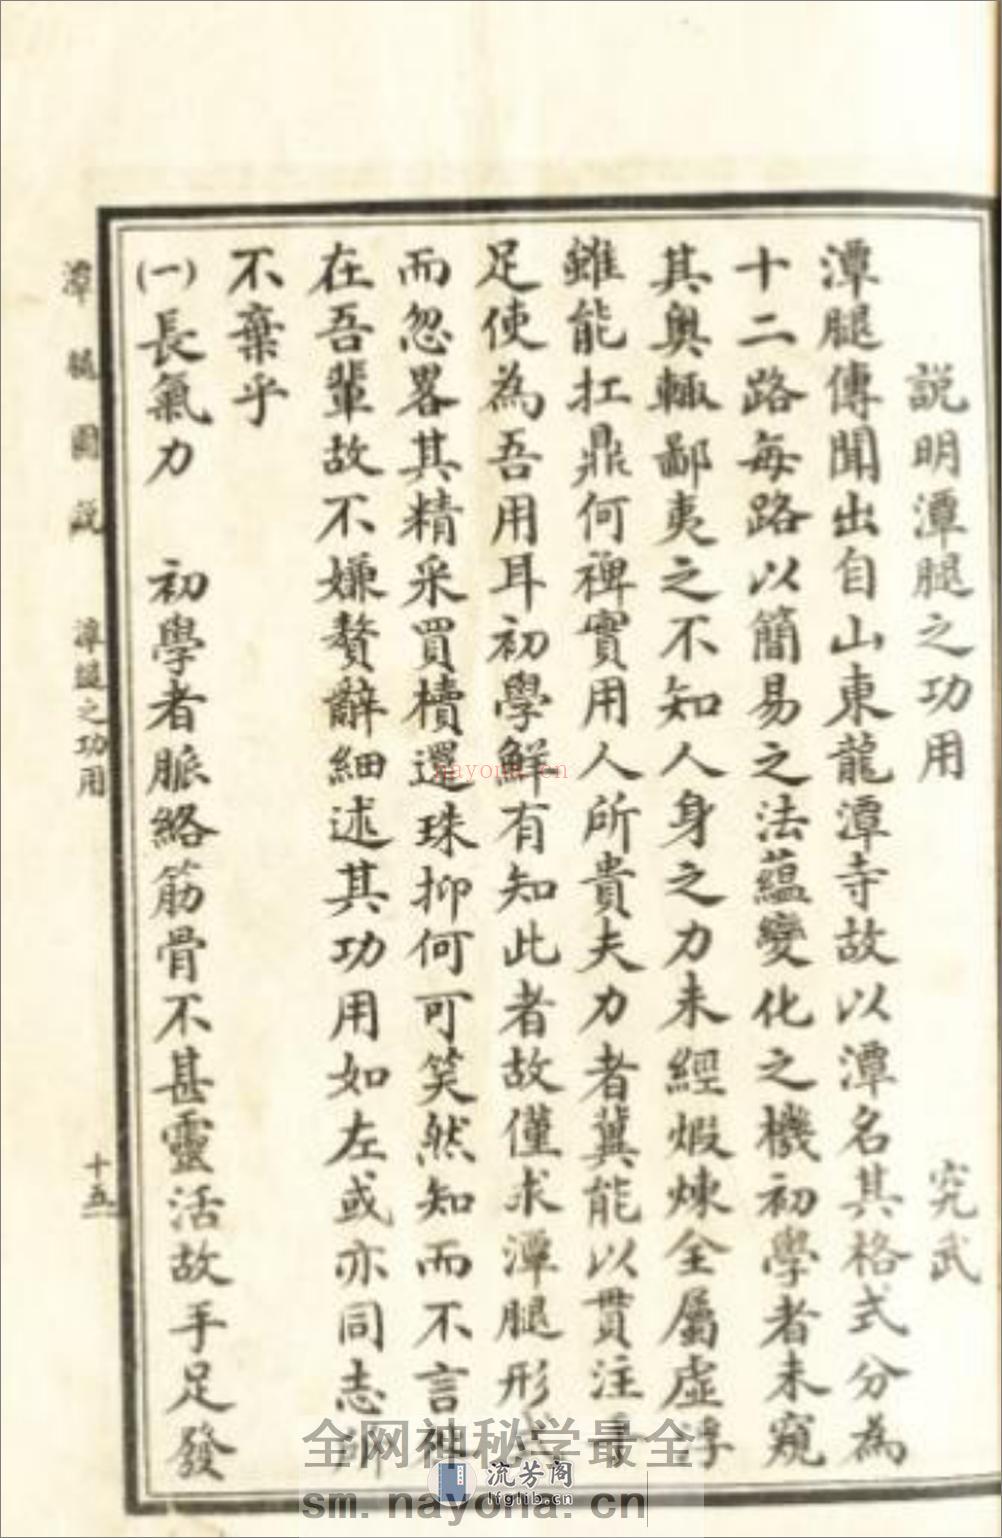 説明潭腿之功用 究武
潭腿傳聞出自山東龍潭寺故以潭名其格式分為
十二路每路以簡易之法蘊變化之機初學者未窺
其奧輒鄙夷之不知人身之力未經煅煉全屬虛浮
雖能扛鼎何裨實用人所貴夫力者冀能以貫注手
足使為吾用耳初學鮮有知此者故僅求潭腿形式
而忽畧其精采買櫝還珠抑何可笑然知而不言神
在吾輩故不嫌贅辭細述其功用如左或亦同志所
不棄乎
(一)長氣力 初學者脈絡筋骨不甚靈活故手足發
潭腿圖説 潭腿之功用 十五
nayona.cn
全网神秘学最全
流芳阁
lfglib.cn
sm.nayona.cn